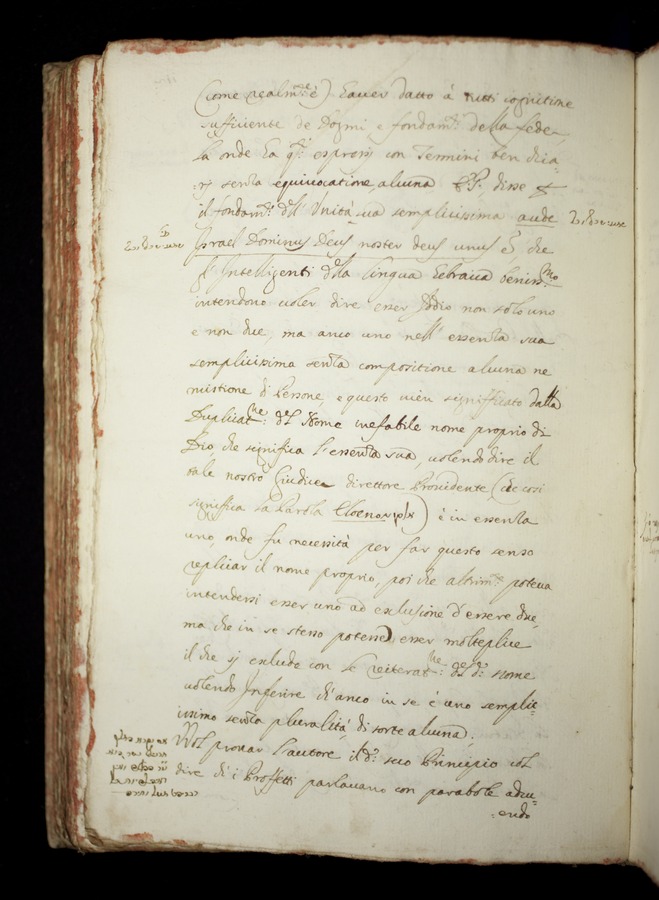 (come realm.te è) hauer datto à tutti cognitione
sufficiente de Dogmi e fondam.ti della fede,
la onde ha q.ti espressi con Termini ben chia-
:ri senza equivocatione alcuna P.o disse
il fondam.to dell'Unità sua semplicissima aude
Israel Dominus Deus noster deus unus è che
gl'Intelligenti della lingua hebraica beniss.mo
intendono uoler dire esser Iddio non solo uno
e non due, ma anco uno nell'essenza sua
semplicissima senza compositione alcuna ne
mistione di Persone, e questo uien significato dalla
Duplicat.ne del Nome inefabile nome proprio di
Dio, che significa l'essenza sua, uolendo dire il
tale nostro Giudice direttore Prouidente (che cosi
significa la Parola Eloenu) è in essenza
uno, onde fu necessità per far questo senso
replicar il nome proprio, poi che altrim.te poteua
intendersi esser uno ad esclusione d'essere due,
ma che in se stesso potesse esser molteplice
il che si esclude con la reiterat.ne del d.o nome
uolendo Inferire ch'anco in se è uno semplic-
issimo senza pluralità di sorte alcuna.
Vol prouar l'autore il d.o suo Principio col
dire ch'i Proffetti parlauano con parabole adu-
:endo